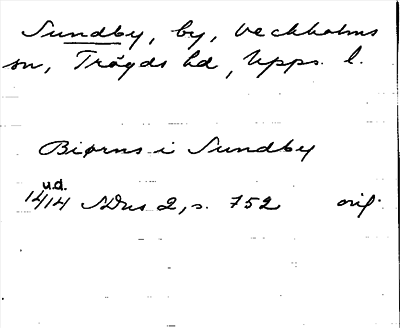 Sundby, by, Veckholms
sn, Trögds hd, Upps. l.
Biørns i Sundby
u.d.
1414 SDns 2, s. 752 orig.